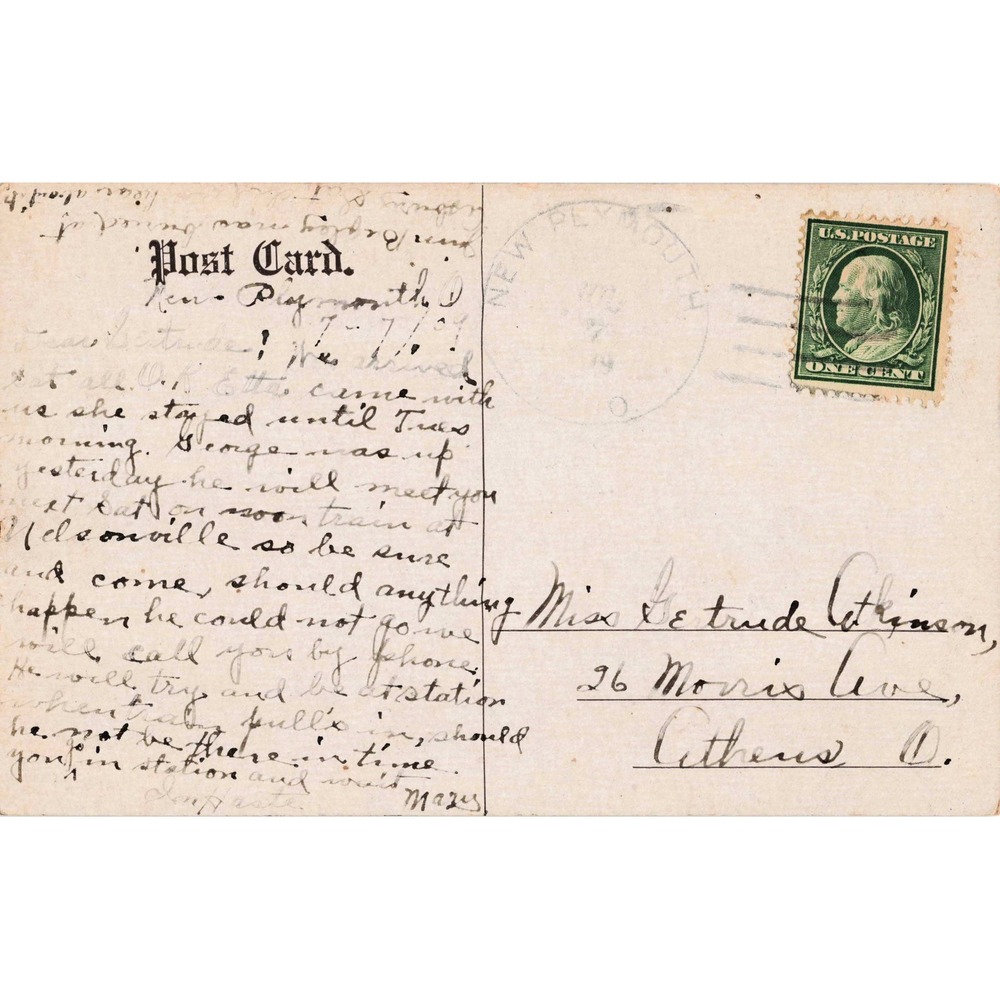 Post Card.
New Plymouth, O
7-7/09
Dear Gertrude! We arrived
Sat all O.K Etta came with
us she stayed until Tues
morning. George was up
yesterday he will meet you
next Sat on noon train at
Nelsonville so be sure
and come, should anything
happen he could not go we
will call you by phone.
He will try and be at station
when train pulls in, should
he not be there in time
you in station and wait
In Haste Mary
was buried at
hear about it
NEW PLYMOUTH
O
U.S. POSTAGE
ONE CENT
Miss Gertrude Atkinson,
26 Morris Ave,
Athens O.